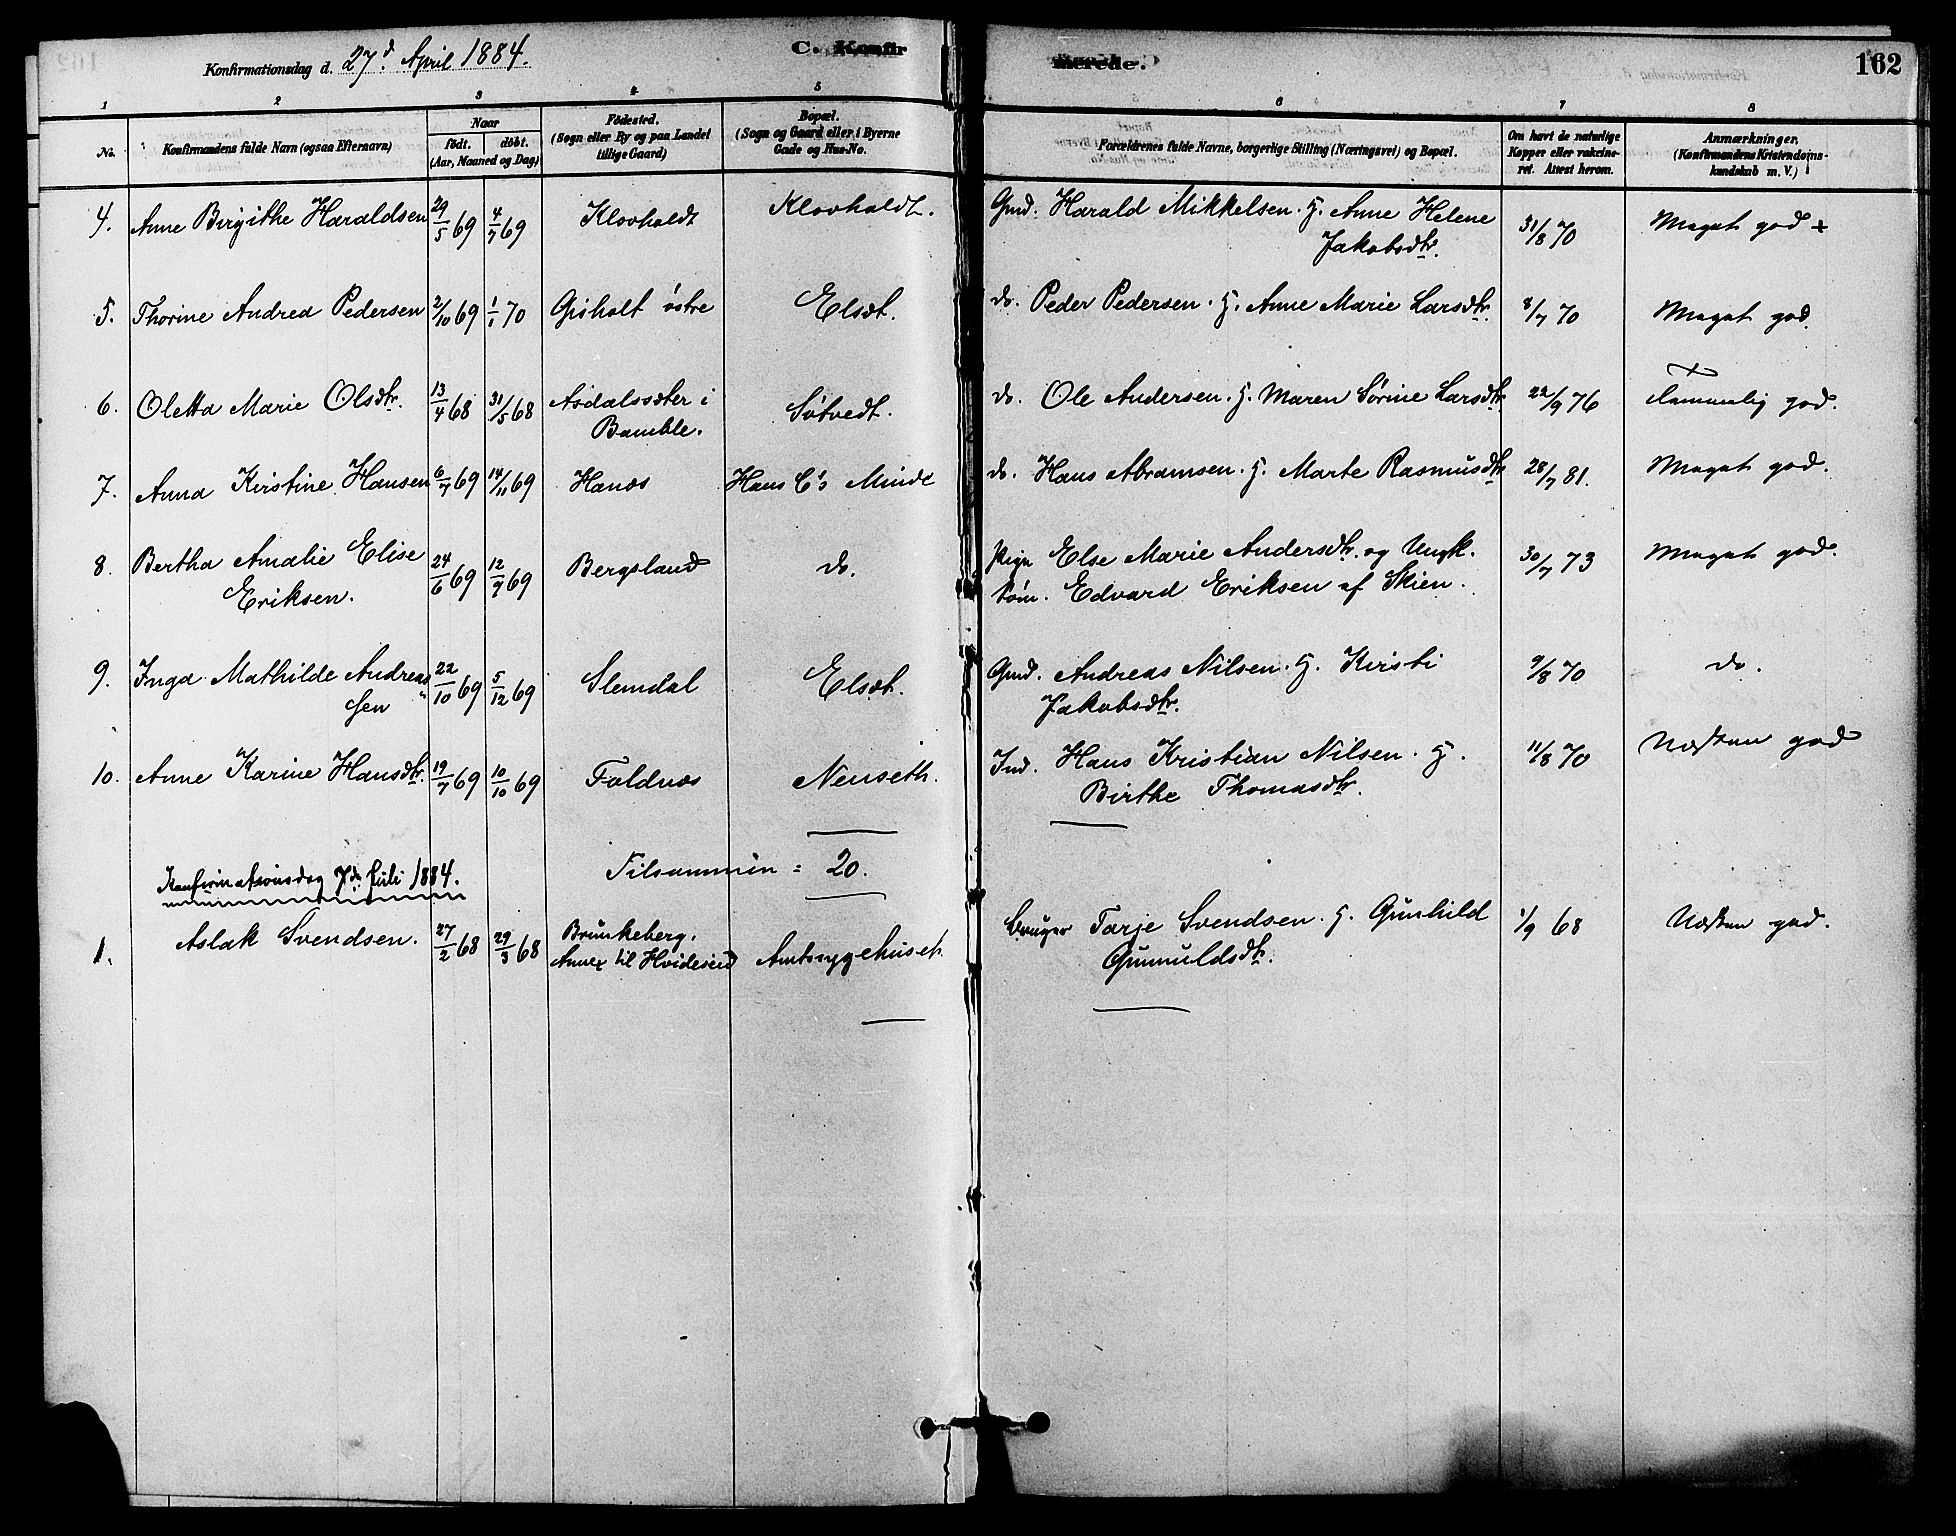 Konfirmationsdag d. 27d. April 1884.
C. Konfir
merede.
162
1 2 3 4 5 6 7 8
No.
Konfirmandens fulde Navn (ogsaa Efternavn)
Naar
födt. döbt.
(Aar, Maaned og Dag)
Födested.
(Sogn eller By og paa Landet
tillige Gaard)
Bopæl.
(Sogn og Gaard eller i Byerne
Gade og Hus-No.
Forældrenes fulde Navne, borgerlige Stilling (Næringsvei) og Bopæl.
Om havt de naturlige
Kopper eller vakcine-
ret. Attest herom.
Anmærkninger.
(Konfirmandens Kristendoms-
kundskab m. V.)
4. Anne Birgithe Haraldsen 29/5 69 4/7 69 Klovholdt Klovholdt. Gmd. Harald Mikkelsen. H. Anne Helene
Jakobsdtr. 31/8 70 Meget god +
5. Thorine Andrea Pedersen 2/10 69 1/1 70 Gisholt östre Elset. do. Peder Pedersen. H. Anne Marie Larsdtr. 8/7 70 Meget god.
6. Oletta Marie Olsdtr. 13/4 68 31/5 68 Asdalssæter i
Bamble. Søtvedt. do. Ole Andersen. H. Maren Sørine Larsdtr. 22/9 76 + Temmelig god.
7. Anna Kirstine Hansen 6/7 69 14/11 69 Hanes Hans C's Minde do. Hans Abramsen. H. Marte Rasmusdtr. 28/7 81. Meget god.
8. Bertha Amalie Elise
Eriksen. 24/6 69 12/9 69 Bergsland do. Pige Else Marie Andersdtr. og Ungk.
Tøm. Edvard Eriksen af Skien. 30/7 73 Meget god.
9. Inga Mathilde Andreas
sen 22/10 69 5/12 69 Slemdal Elset. Gmd. Andreas Nilsen. H. Kirsti
Jakobsdtr. 9/8 70 do.
10. Anne Karine Hansdtr. 19/7 69 10/10 69 Foldnes Nenseth. Ind. Hans Kristian Nilsen. H.
Birthe Thomasdtr. 11/8 70 Næsten god
Tilsammen = 20.
Konfirmationsdag 7de Juli 1884.
1. Aslak Svendsen. 27/2 68 29/3 68 Brunkeberg,
Annex til Hvideseid Amtssygehuset. Bruger Tarje Svendsen. H. Gunhild
Gunnuldsdtr. 1/9 68 Næsten god.